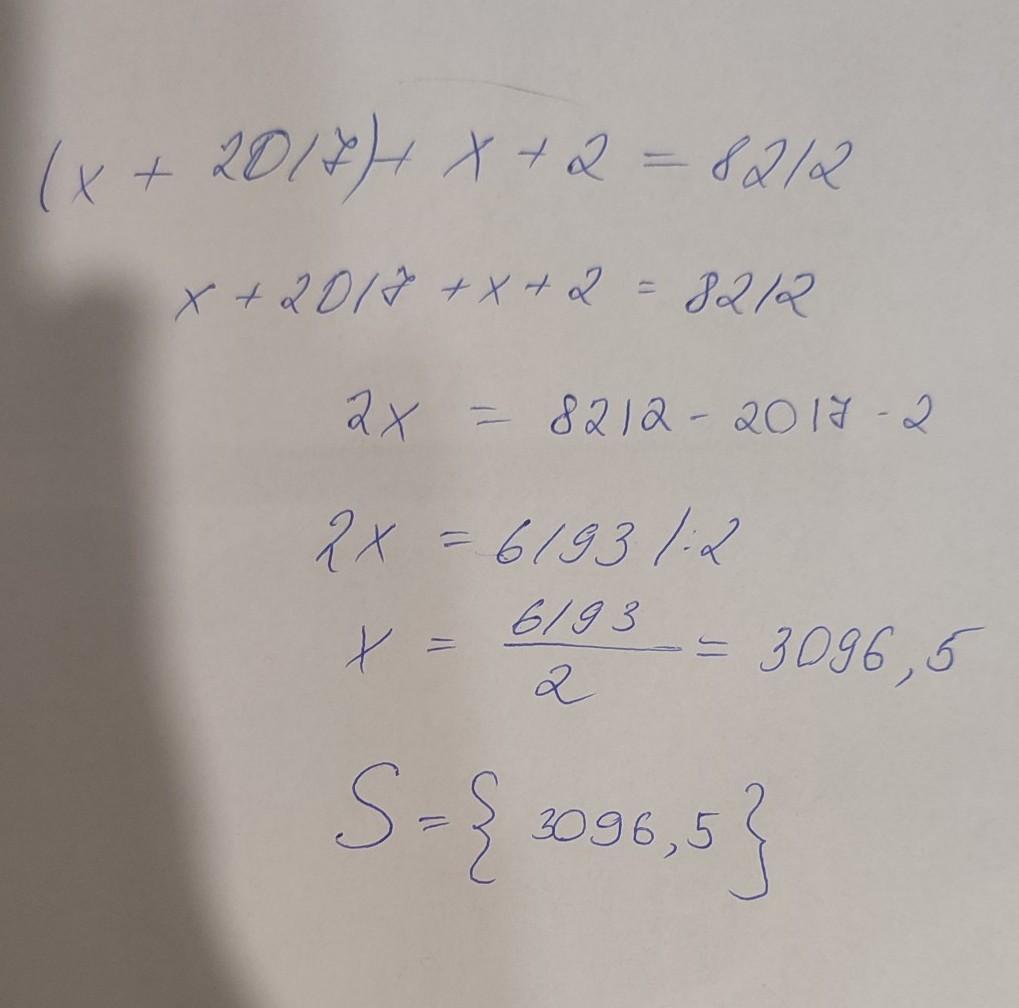 (x + 2017) + x + 2 = 8212
x + 2017 + x + 2 = 8212
2x = 8212 - 2017 - 2
2x = 6193 /:2
x = 6193/2 = 3096,5
S = { 3096,5 }